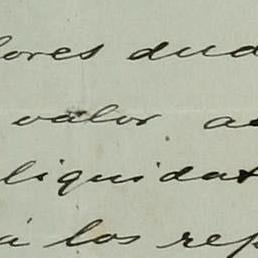 lores dud
valor a
liquidat
á los rep